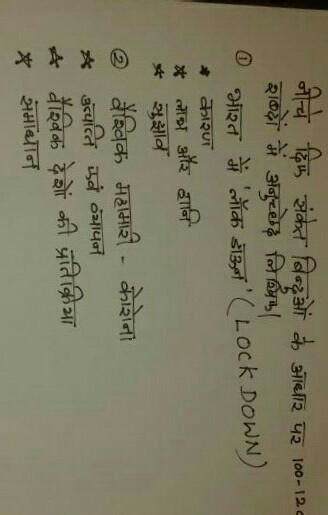 नीचे दिए संकेत बिन्दुओं के आधार पर 100-120
शब्दों में अनुच्छेद लिखिए।
① भारत में 'लॉक डाऊन' (LOCK DOWN)
★ कारण
★ लाभ और हानि
★ सुझाव
② वैश्विक महामारी - कोरोना
★ उत्पत्ति एवं व्यापन
★ वैश्विक देशों की प्रतिक्रिया
★ समाधान